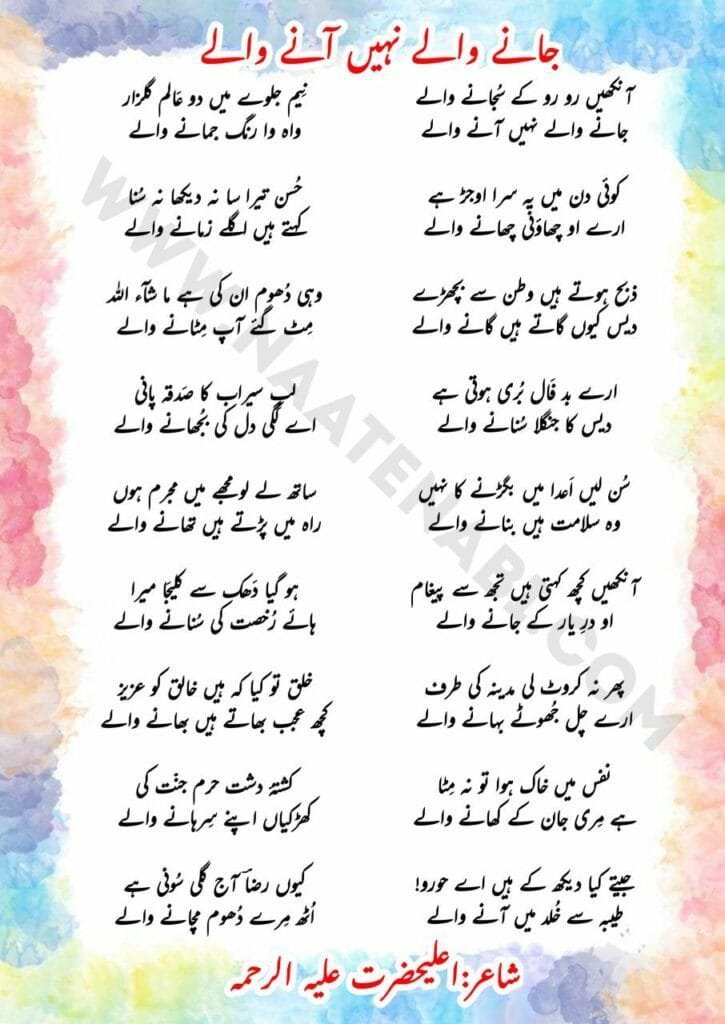 جانے والے نہیں آنے والے
آنکھیں رو رو کے سُجانے والے
جانے والے نہیں آنے والے
کوئی دن میں یہ سرا اوجڑ ہے
ارے او چھاؤنی چھانے والے
ذبح ہوتے ہیں وطن سے بچھڑے
دیس کیوں گاتے ہیں گانے والے
ارے بد فَال بُری ہوتی ہے
دیس کا جنگلا سُنانے والے
سُن لیں اَعدا میں بگڑنے کا نہیں
وہ سلامت ہیں بنانے والے
آنکھیں کچھ کہتی ہیں تجھ سے پیغام
او درِ یار کے جانے والے
پھر نہ کروٹ لی مدینہ کی طرف
ارے چل جُھوٹے بہانے والے
نفس میں خاک ہوا تو نہ مِٹا
ہے مِری جان کے کھانے والے
جیتے کیا دیکھ کے ہیں اے حورو!
طیبہ سے خُلد میں آنے والے
نِیم جلوے میں دو عَالم گلزار
واہ وا رنگ جمانے والے
حُسن تیرا سا نہ دیکھا نہ سُنا
کہتے ہیں اگلے زمانے والے
وہی دُھوم ان کی ہے ما شآء اللہ
مِٹ گئے آپ مِٹانے والے
لبِ سیراب کا صَدقہ پانی
اے لگی دل کی بُجھانے والے
ساتھ لے لو مجھے میں مجرم ہوں
راہ میں پڑتے ہیں تھانے والے
ہو گیا دَھک سے کلیجَا میرا
ہائے رُخصت کی سُنانے والے
خلق تو کیا کہ ہیں خالق کو عزیز
کچھ عجب بھاتے ہیں بھانے والے
کشتۂ دشت حرم جنّت کی
کھڑکیاں اپنے سِرہانے والے
کیوں رضاؔ آج گلی سُونی ہے
اُٹھ مِرے دُھوم مچانے والے
شاعر:اعلیحضرت علیہ الرحمہ
WWW.NAATENABI.COM